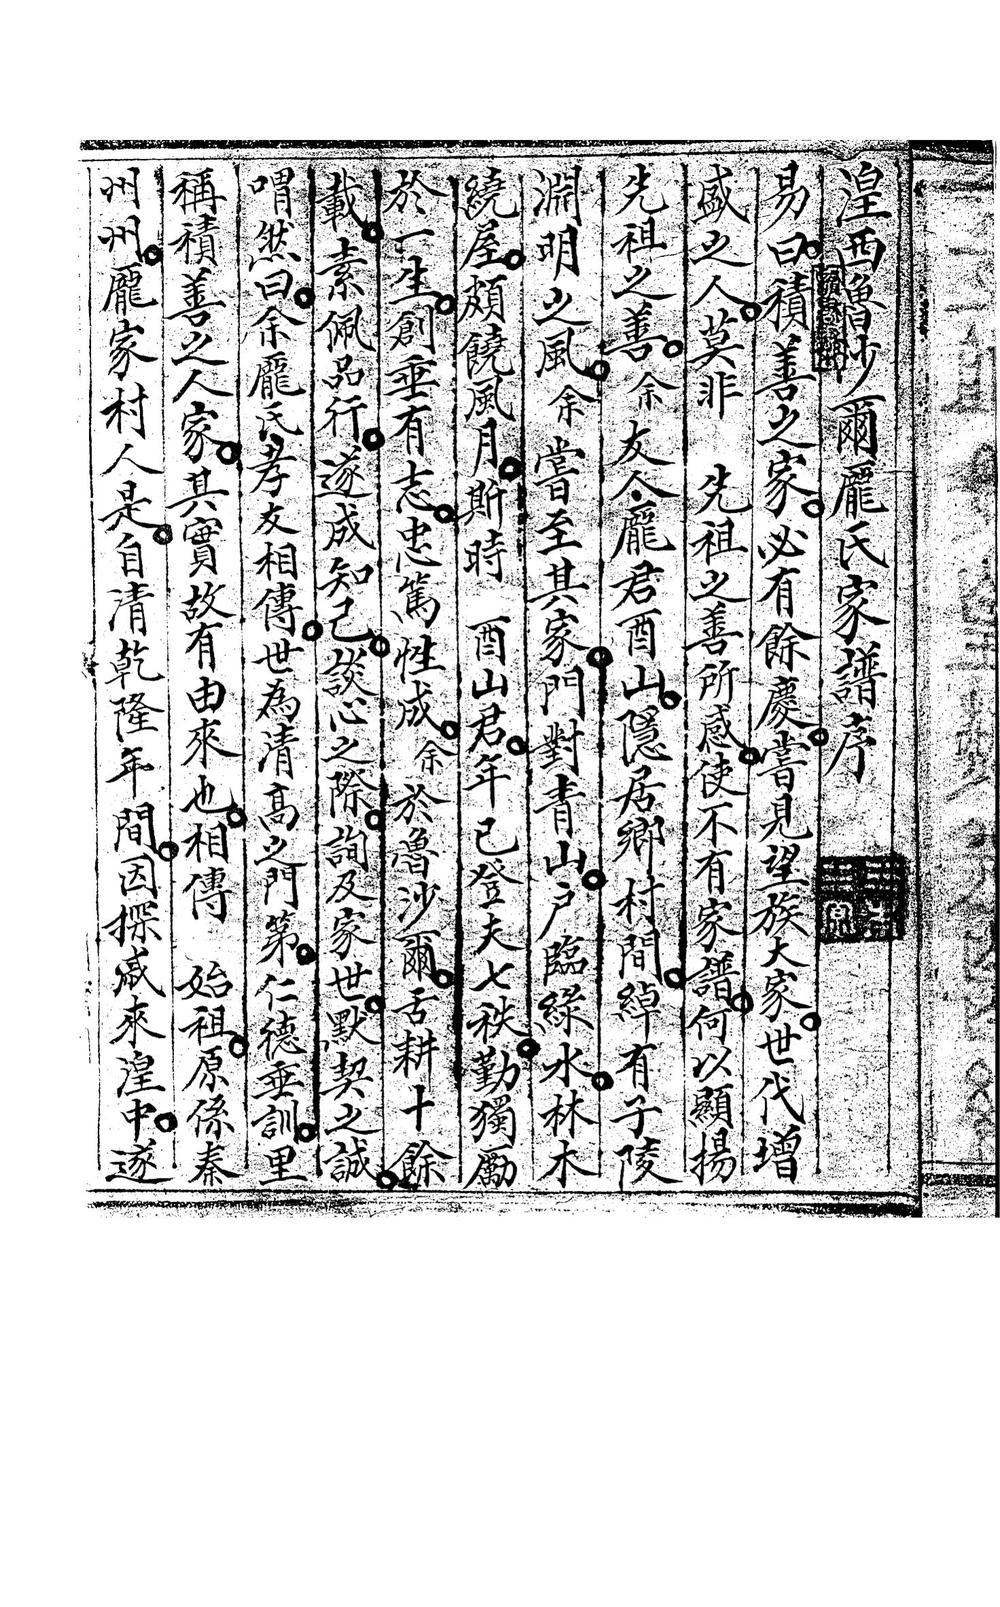 湟西魯沙爾龐氏家譜序
易曰積善之家必有餘慶嘗見望族大家世代增
盛之人莫非 先祖之善所感使不有家譜何以顯揚
先祖之善余友人龐君酉山隱居鄉村間綽有子陵
淵明之風余嘗至其家門對青山戶臨綠水林木
繞屋頗饒風月斯時 酉山君年已登夫七秩勤獨勵
於一生創垂有志忠篤性成余於魯沙爾舌耕十餘
載素佩品行遂成知己談心之際詢及家世默契之誠
喟然曰余龐氏孝友相傳世為清高之門第仁德垂訓里
稱積善之人家其實故有由來也相傳 始祖原係秦
州州龐家村人是自清乾隆年間因探戚來湟中遂